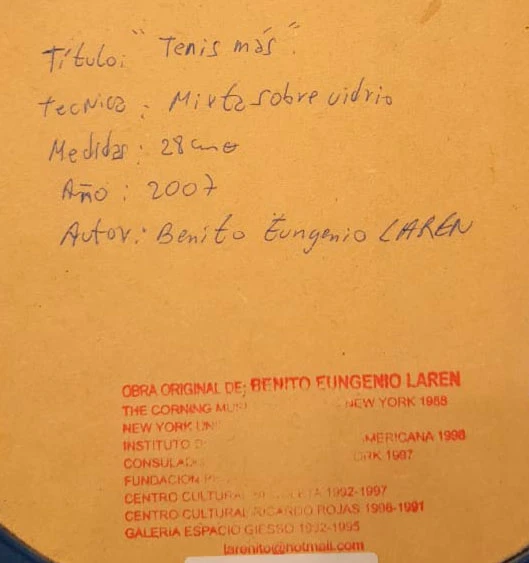 Título: "Tenis más".
Tecnica: Mixta sobre vidrio
Medidas: 28 cm ø
Año: 2007
Autor: Benito Eungenio LAREN
OBRA ORIGINAL DE; BENITO EUNGENIO LAREN
THE CORNING NEW YORK 1988
NEW YORK
INSTITUTO 1998
CONSULADO 1987
FUNDACION
CENTRO CULTURAL 1992-1997
CENTRO CULTURAL RICARDO ROJAS 1996-1991
GALERIA ESPACIO GIESSO 1992-1995
larenito@hotmail.com